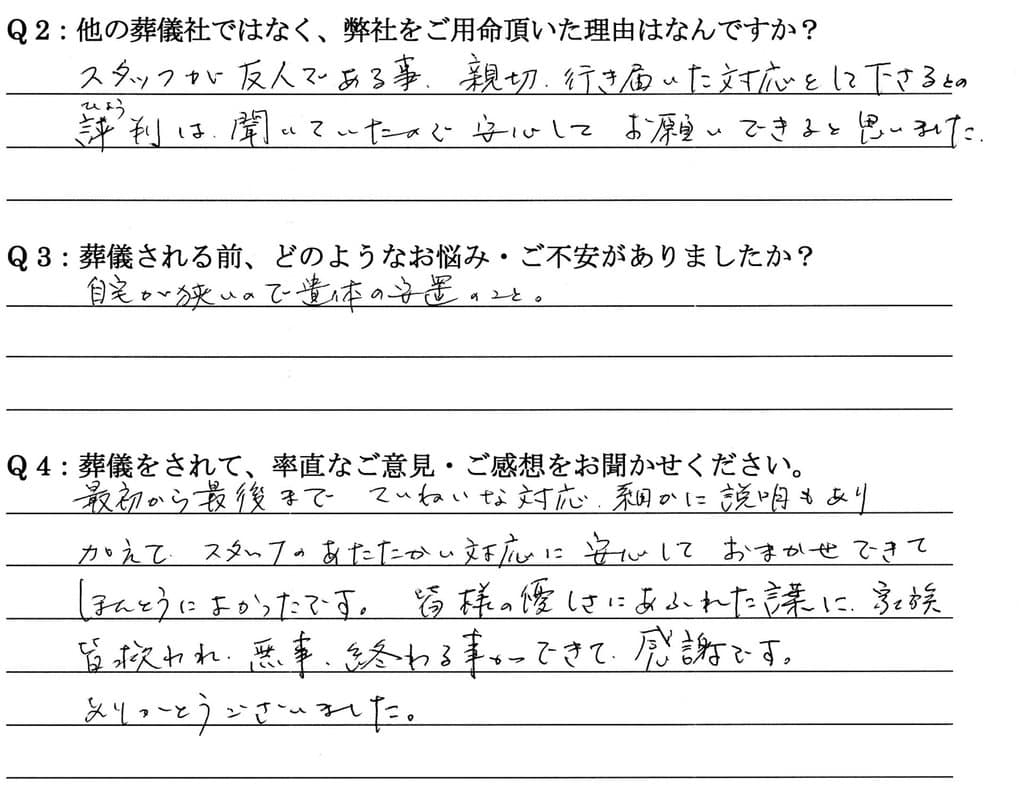 Q2：他の葬儀社ではなく、弊社をご用命頂いた理由はなんですか？
スタッフが友人である事、親切、行き届いた対応をして下さるとの
ひょう
評判は、聞いていたので安心して お願いできると思いました。
Q3：葬儀される前、どのようなお悩み・ご不安がありましたか？
自宅が狭いので遺体の安置のこと。
Q4：葬儀をされて、率直なご意見・ご感想をお聞かせください。
最初から最後まで ていねいな対応、細かに説明もあり
加えて、スタッフのあたたかい対応に 安心して おまかせできて
ほんとうによかったです。 皆様の優しさにあふれた言葉に、家族
皆救われ、無事、終わる事ができて、感謝です。
ありがとうございました。